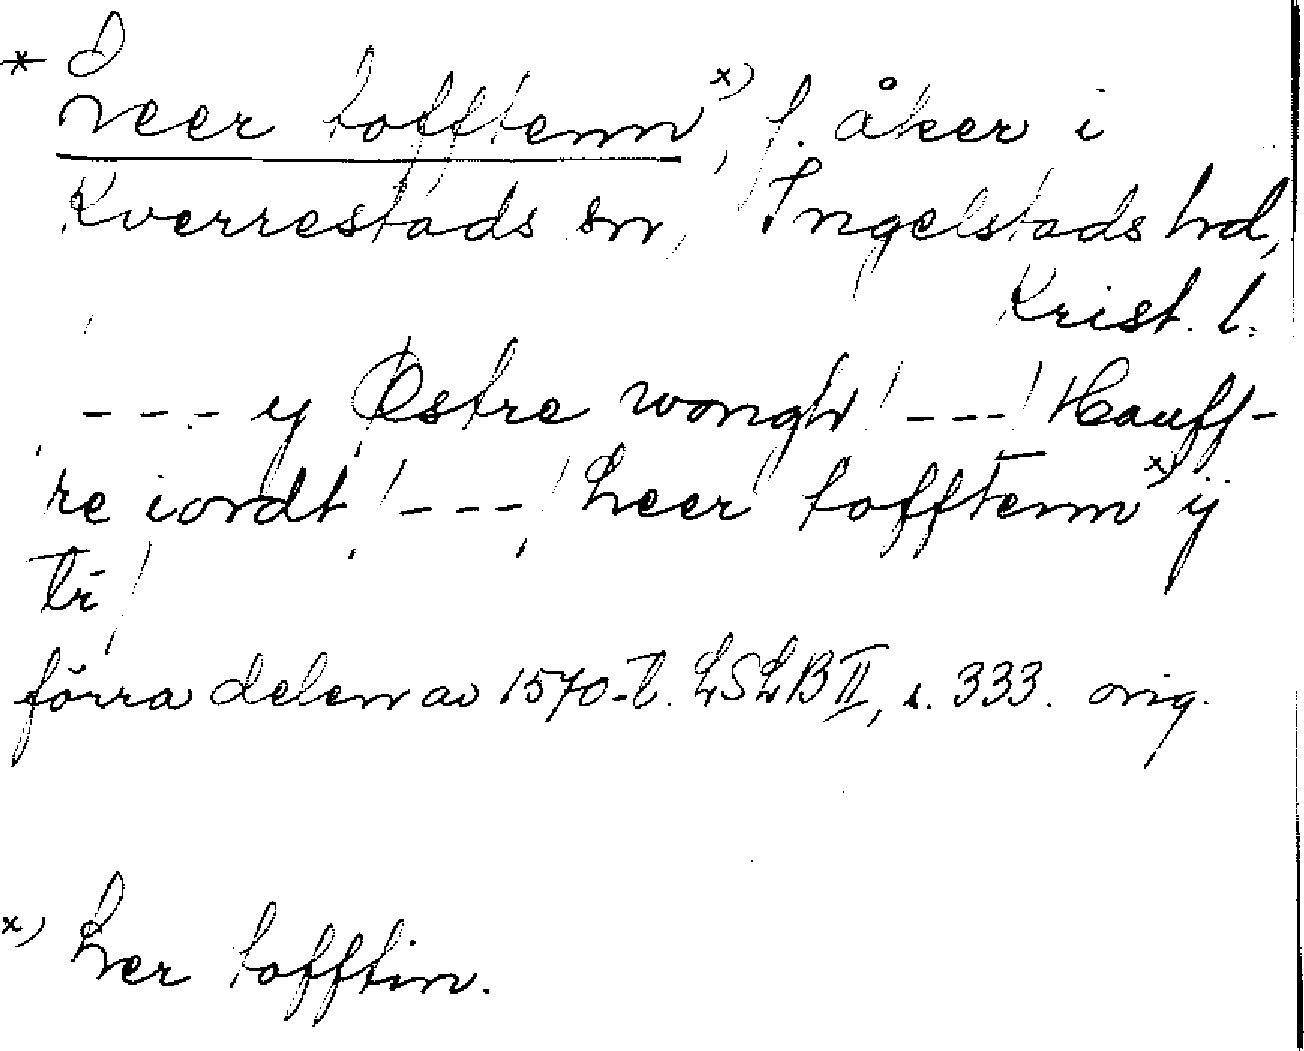 * Leer tofftenn x), f. åker i
Kverrestads sn, Ingelstads hd,
Krist. l.
--- y Østre wongh / --- / Hauff-
re iordt / --- / Leer tofftenn x) ij
tr /
förra delen av 1570-t. LSLB II, s. 333. orig.
x) Ler tofftin.